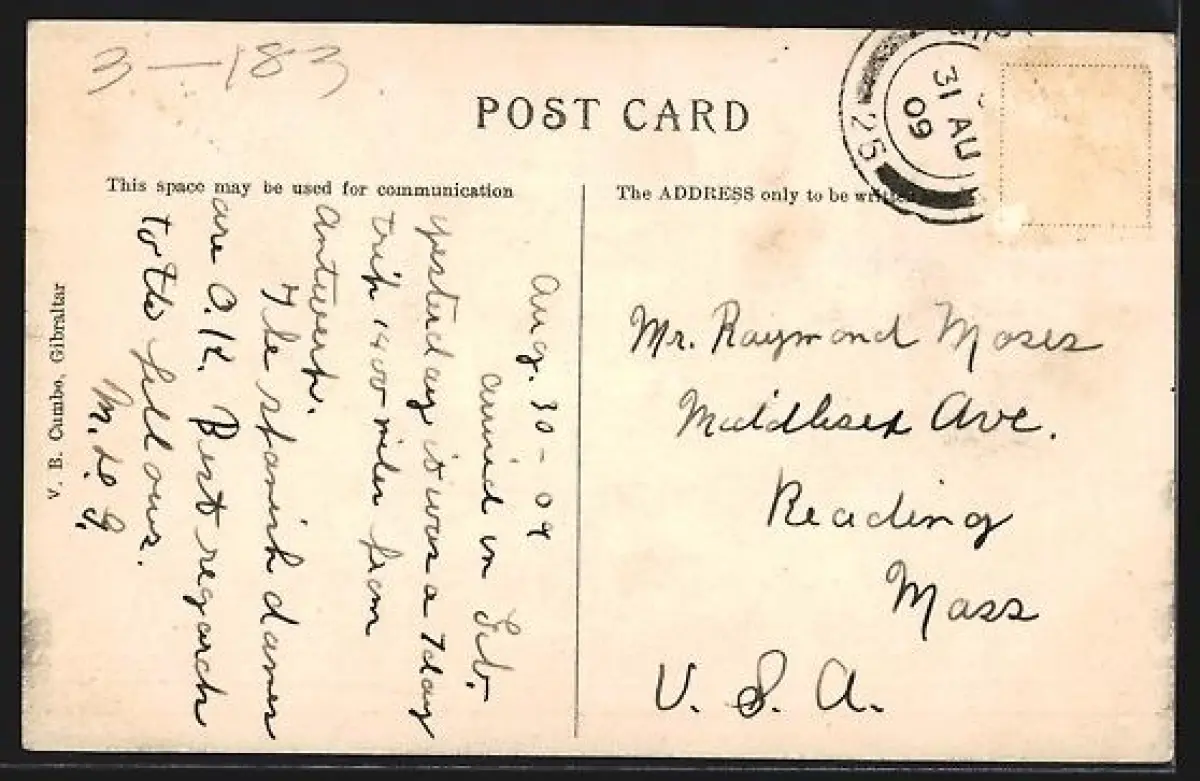 3 – 183
POST CARD
This space may be used for communication
The ADDRESS only to be
25
31 AU
09
Aug. 30 – 09
arrived in Gib.
yesterday it was a 7 day
trip 1400 miles from
Antwerp.
The spanish dames
are O.K. Best regards
to the fellows.
M. De G.
Mr. Raymond Moses
Middlesex Ave.
Reading
Mass
U. S. A.
V. B. Cumbo, Gibraltar